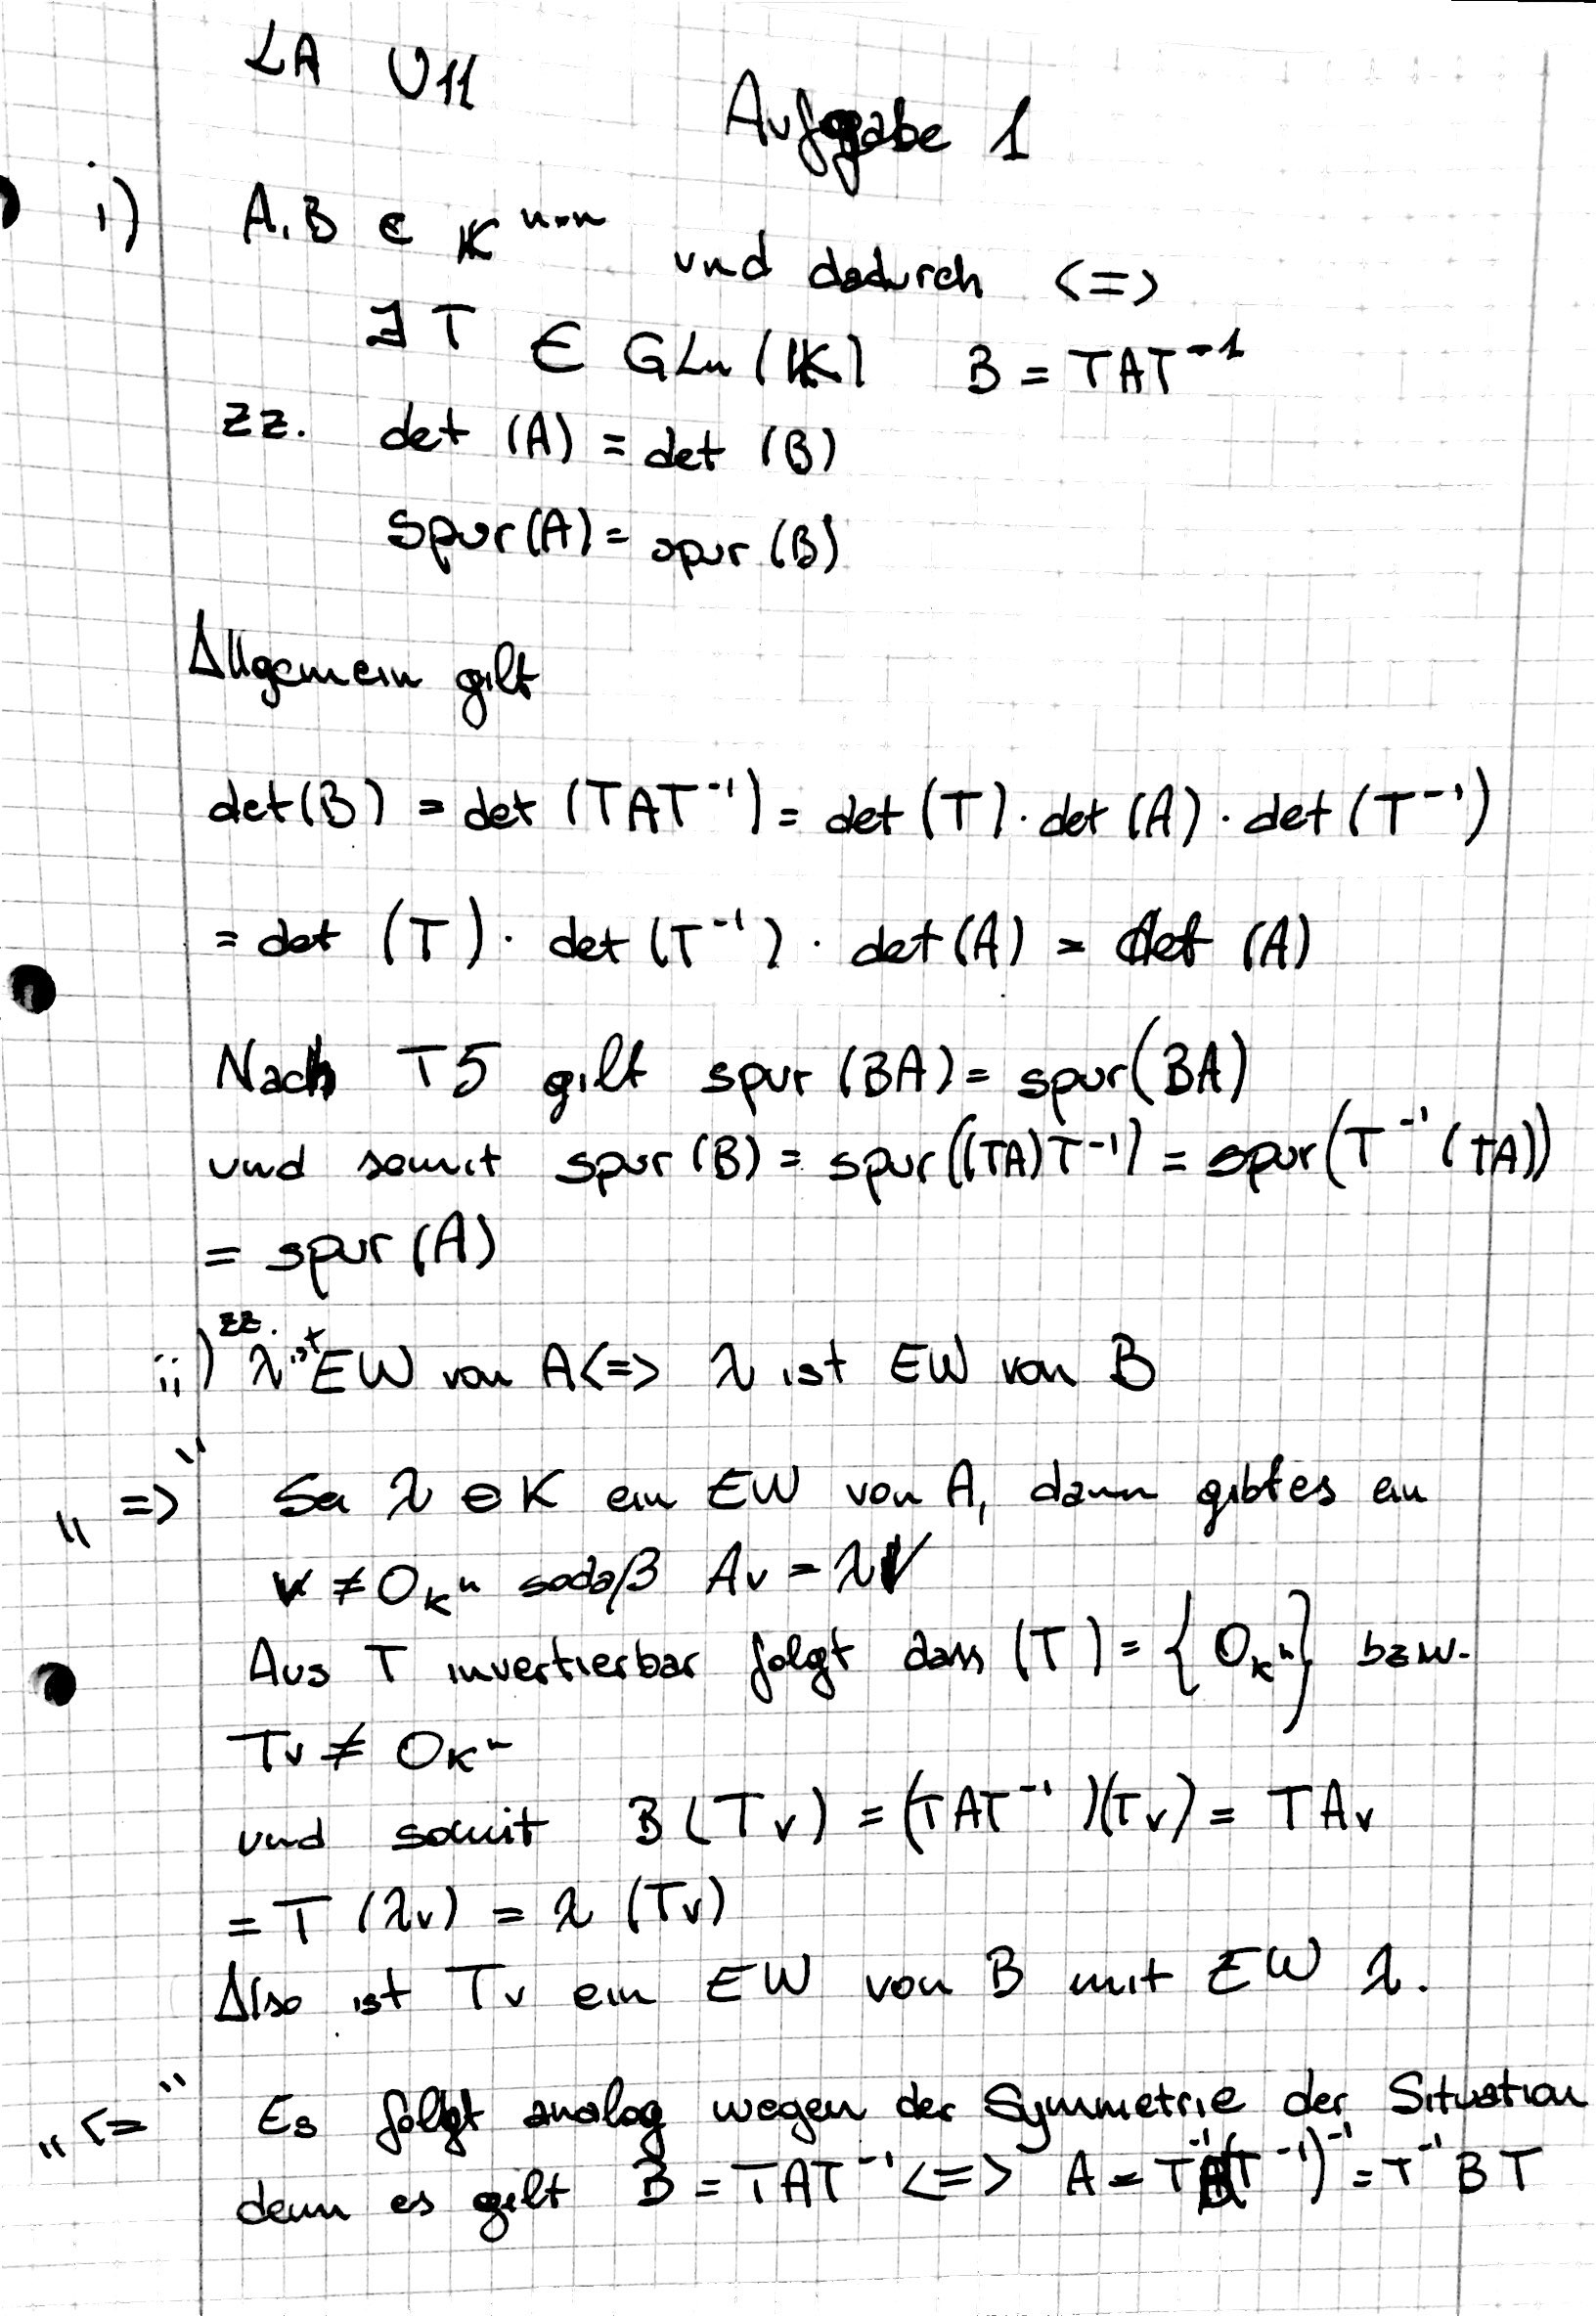 LA Ü11
Aufgabe 1
i) A, B ∈ K^{n×n} und dadurch <=>
∃ T ∈ GLn (K) B = TAT^{-1}
zz. det (A) = det (B)
Spur (A) = spur (B)
Allgemein gilt
det(B) = det (TAT^{-1}) = det (T) · det (A) · det (T^{-1})
= det (T) · det (T^{-1}) · det (A) = det (A)
Nach T5 gilt spur (BA) = spur (BA)
und somit spur (B) = spur ((TA)T^{-1}) = spur (T^{-1} (TA))
= spur (A)
ii) zz. λ ist EW von A <=> λ ist EW von B
„=>" Sei λ ∈ K ein EW von A, dann gibt es ein
v ≠ O_{K^n} sodaß Av = λv
Aus T invertierbar folgt dass (T) = {O_{K^n}} bzw.
Tv ≠ O_{K^n}
und somit B (Tv) = (TAT^{-1})(Tv) = TAv
= T (λv) = λ (Tv)
Also ist Tv ein EW von B mit EW λ.
„<=" Es folgt analog wegen der Symmetrie der Situation
denn es gilt B = TAT^{-1} <=> A = T^{-1}B(T^{-1})^{-1} = T^{-1}BT